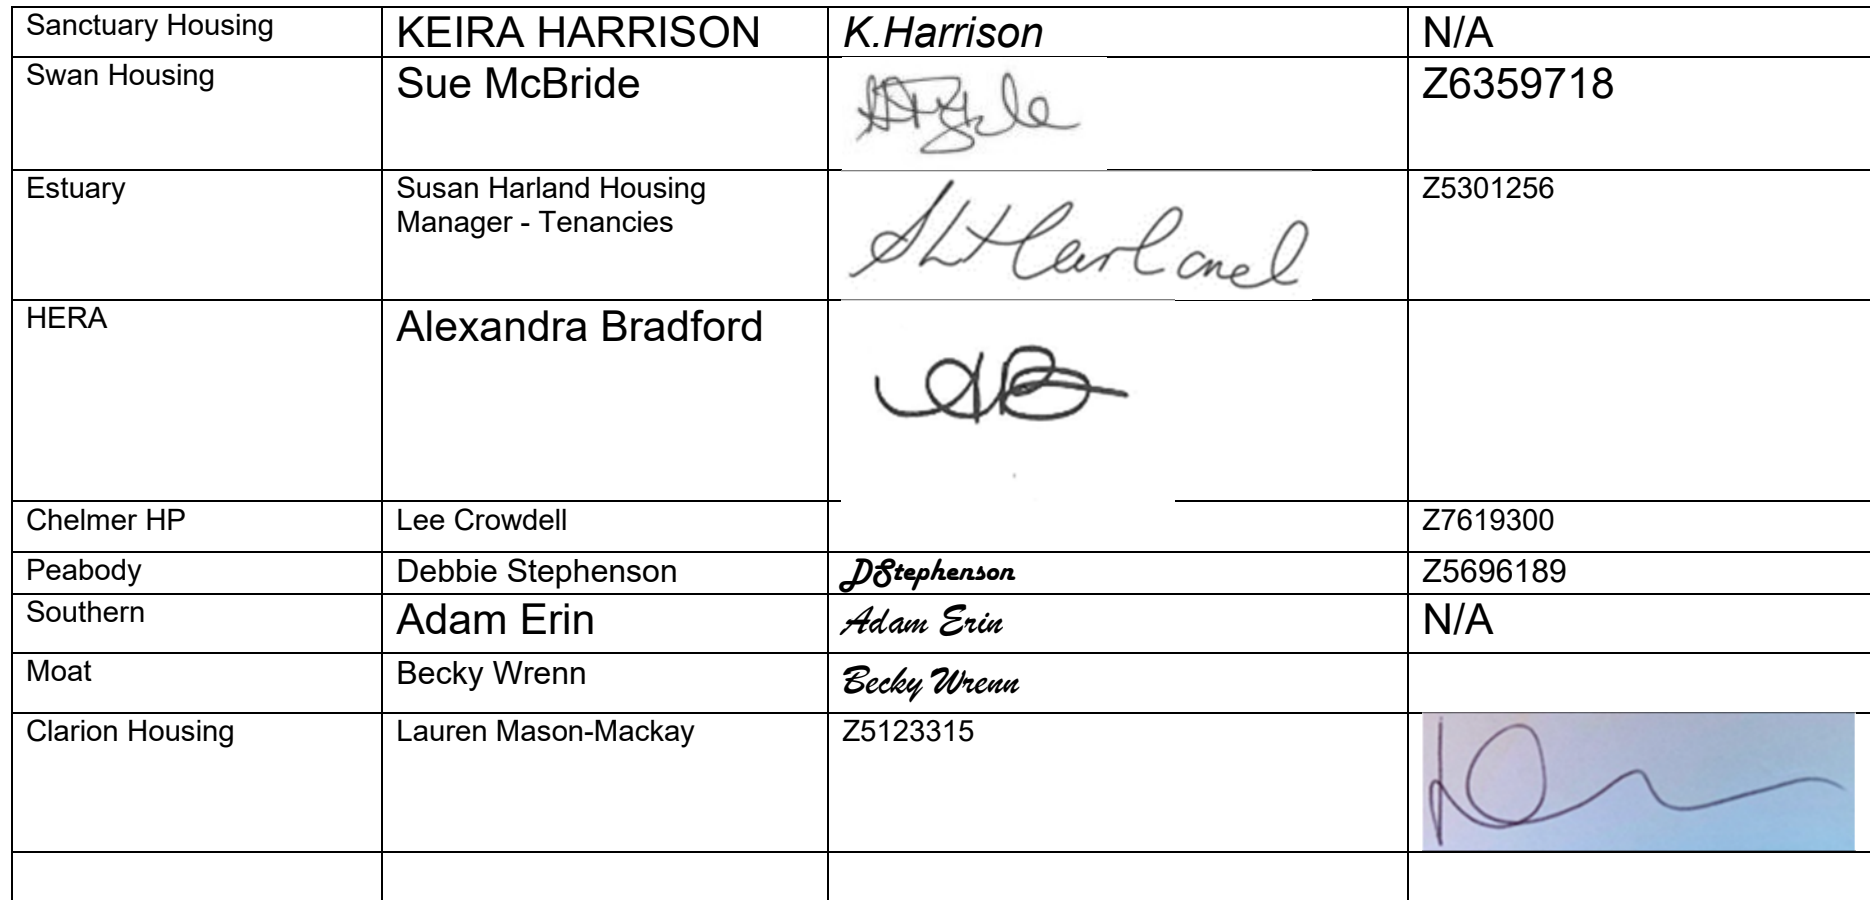 Sanctuary Housing KEIRA HARRISON K.Harrison N/A
Swan Housing Sue McBride Z6359718
Estuary Susan Harland Housing SLHarland Z5301256
Manager - Tenancies
HERA Alexandra Bradford AB
Chelmer HP Lee Crowdell Z7619300
Peabody Debbie Stephenson DStephenson Z5696189
Southern Adam Erin Adam Erin N/A
Moat Becky Wrenn Becky Wrenn
Clarion Housing Lauren Mason-Mackay Z5123315